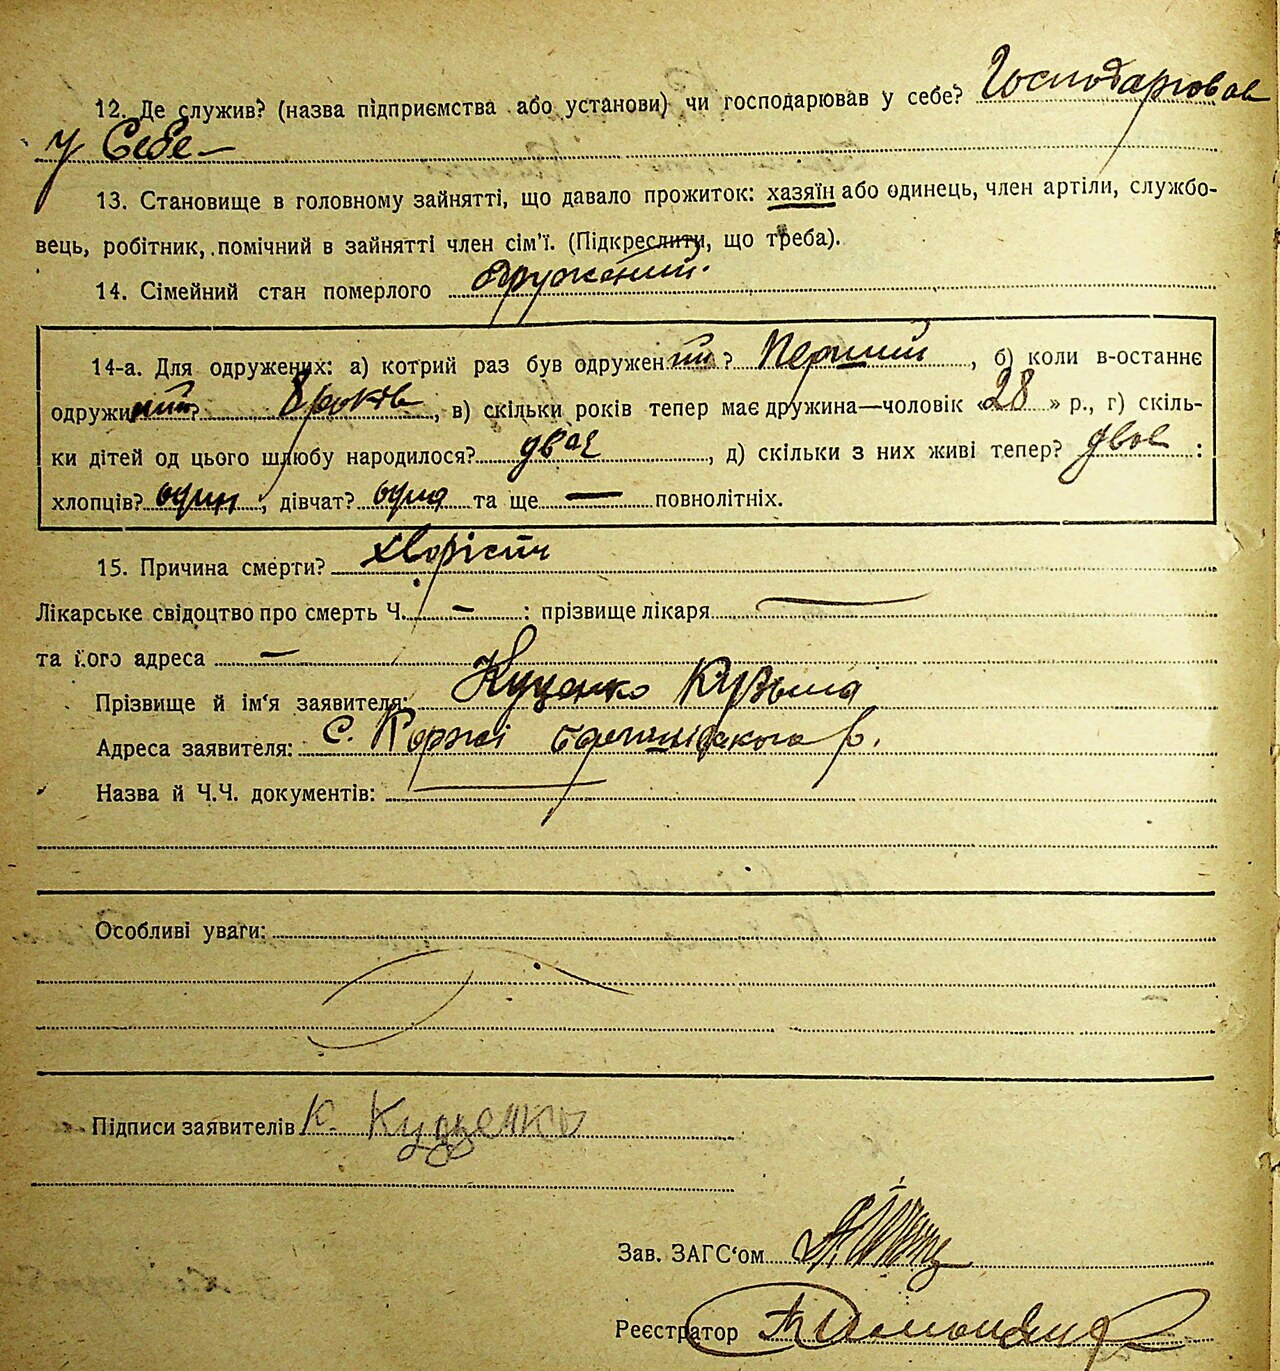 12. Де служив? (назва підприємства або установи) чи господарював у себе? Господарював
у себе
13. Становище в головному зайнятті, що давало прожиток: хазяїн або одинець, член артіли, службо-
вець, робітник, помічний в зайнятті член сім'ї. (Підкреслити, що треба).
14. Сімейний стан померлого одружений.
14-а. Для одружених: а) котрий раз був одружений? Перший, б) коли в-останнє
одружи 8 років, в) скільки років тепер має дружина—чоловік «28» р., г) скіль-
ки дітей од цього шлюбу народилося? двоє, д) скільки з них живі тепер? двоє:
хлопців? один, дівчат? одна та ще — повнолітніх.
15. Причина смерти? хворість
Лікарське свідоцтво про смерть Ч. —: прізвище лікаря —
та його адреса —
Прізвище й ім'я заявителя: Куценко Кузьма
Адреса заявителя: с. Коржі р.
Назва й Ч.Ч. документів: —
Особливі уваги:
Підписи заявителів К. Куценко
Зав. ЗАГС'ом
Реєстратор